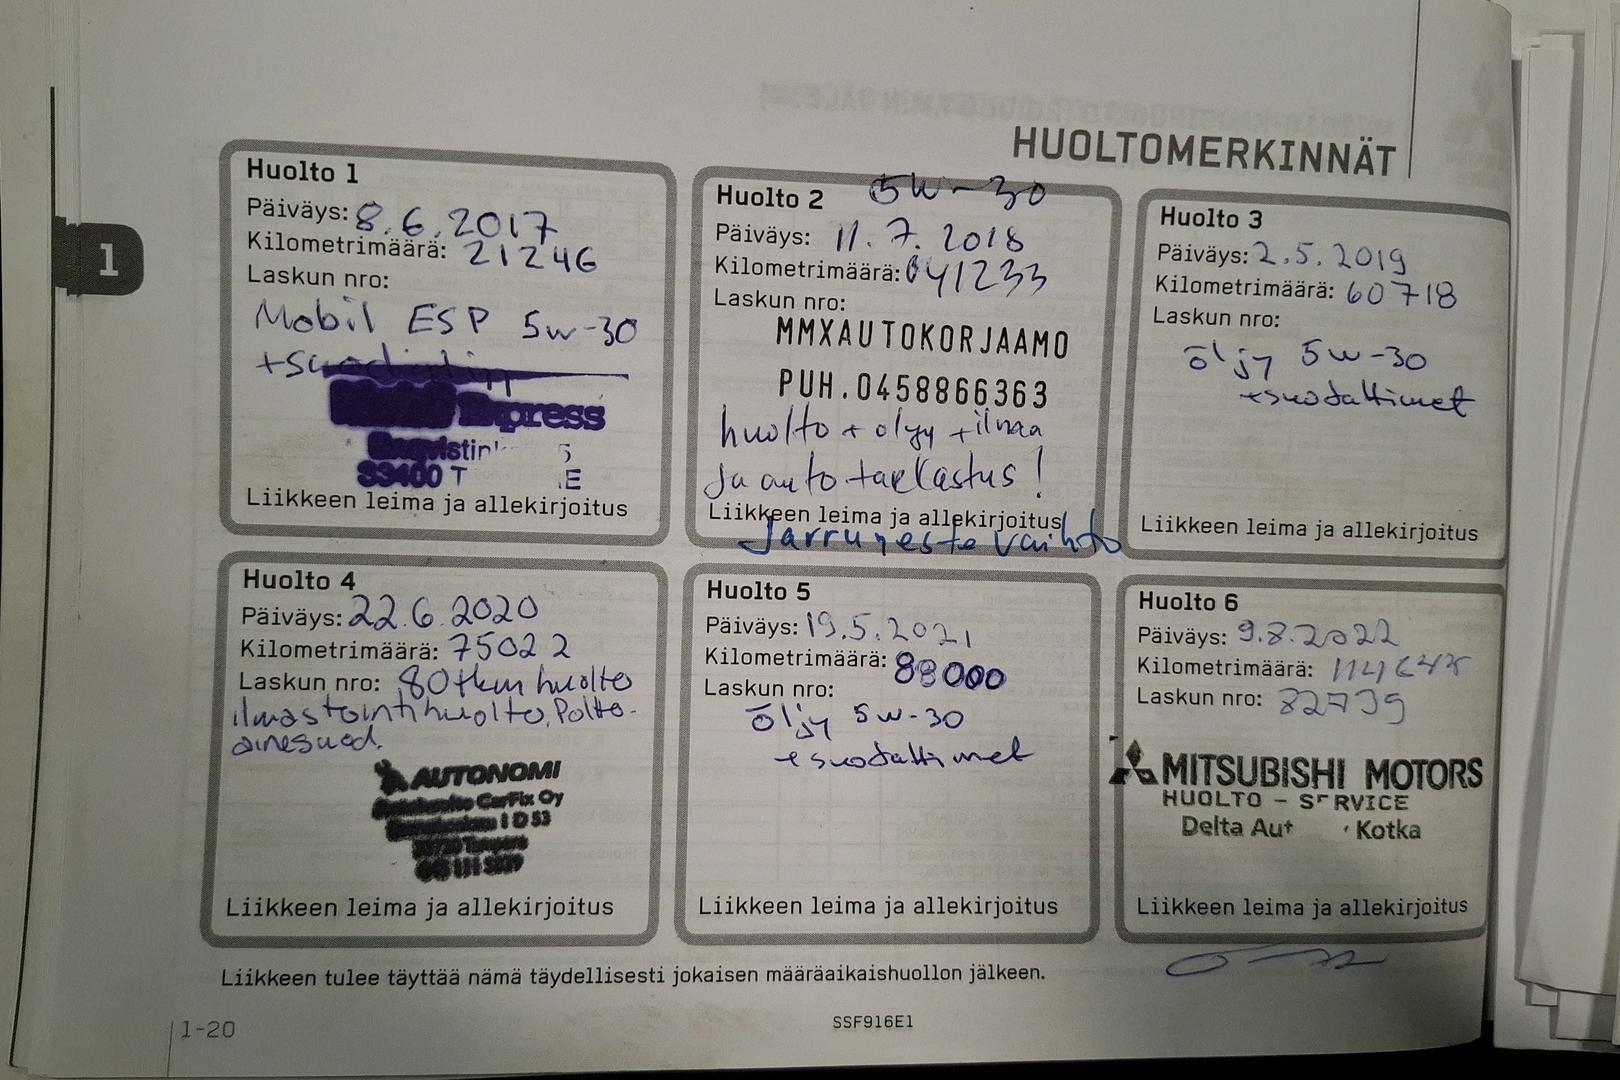 HUOLTOMERKINNÄT
1
Huolto 1
Päiväys: 8.6.2017
Kilometrimäärä: 21246
Laskun nro:
Mobil ESP 5w-30
Express
Liikkeen leima ja allekirjoitus
Huolto 2 5W-30
Päiväys: 11.7.2018
Kilometrimäärä: 041233
Laskun nro:
MMXAUTOKORJAAMO
PUH.0458866363
huolto + olyy + ilmaa
ja auto tarkastus!
Liikkeen leima ja allekirjoitus
Jarruneste vaihto
Huolto 3
Päiväys: 2.5.2019
Kilometrimäärä: 60718
Laskun nro:
öljy 5w-30
+suodattimet
Liikkeen leima ja allekirjoitus
Huolto 4
Päiväys: 22.6.2020
Kilometrimäärä: 75022
Laskun nro: 80tkm huolto
ilmastointihuolto, Poltto-
ainesuod.
AUTONOMI
CarFix Oy
1 D 53
Liikkeen leima ja allekirjoitus
Huolto 5
Päiväys: 19.5.2021
Kilometrimäärä:
Laskun nro:
öljy 5w-30
+suodattimet
Liikkeen leima ja allekirjoitus
Huolto 6
Päiväys: 9.8.2022
Kilometrimäärä:
Laskun nro: 82739
MITSUBISHI MOTORS
HUOLTO - SERVICE
Delta Kotka
Liikkeen leima ja allekirjoitus
Liikkeen tulee täyttää nämä täydellisesti jokaisen määräaikaishuollon jälkeen.
1-20
SSF916E1